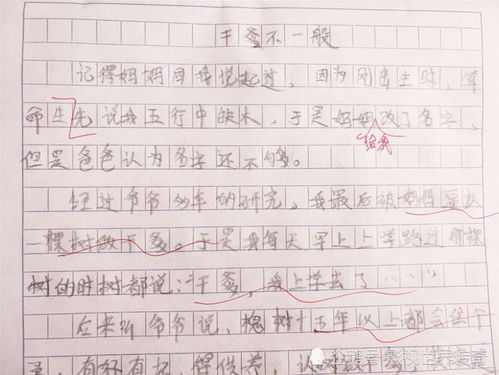 干爹不一般
记得妈妈同我说起过，因为刚出生时，算
命生先说我五行中缺木，于是妈妈改了名字，
给我
但是爸爸认为名字还不够。
经过爷爷多年的研究，我最后被妈妈
一棵树做干爹。于是我每天早上上学路过那棵
树的时树都说：“干爹，我上学去了……”
后来听爷爷说，槐树十五年以上都会保个
，有好有坏，